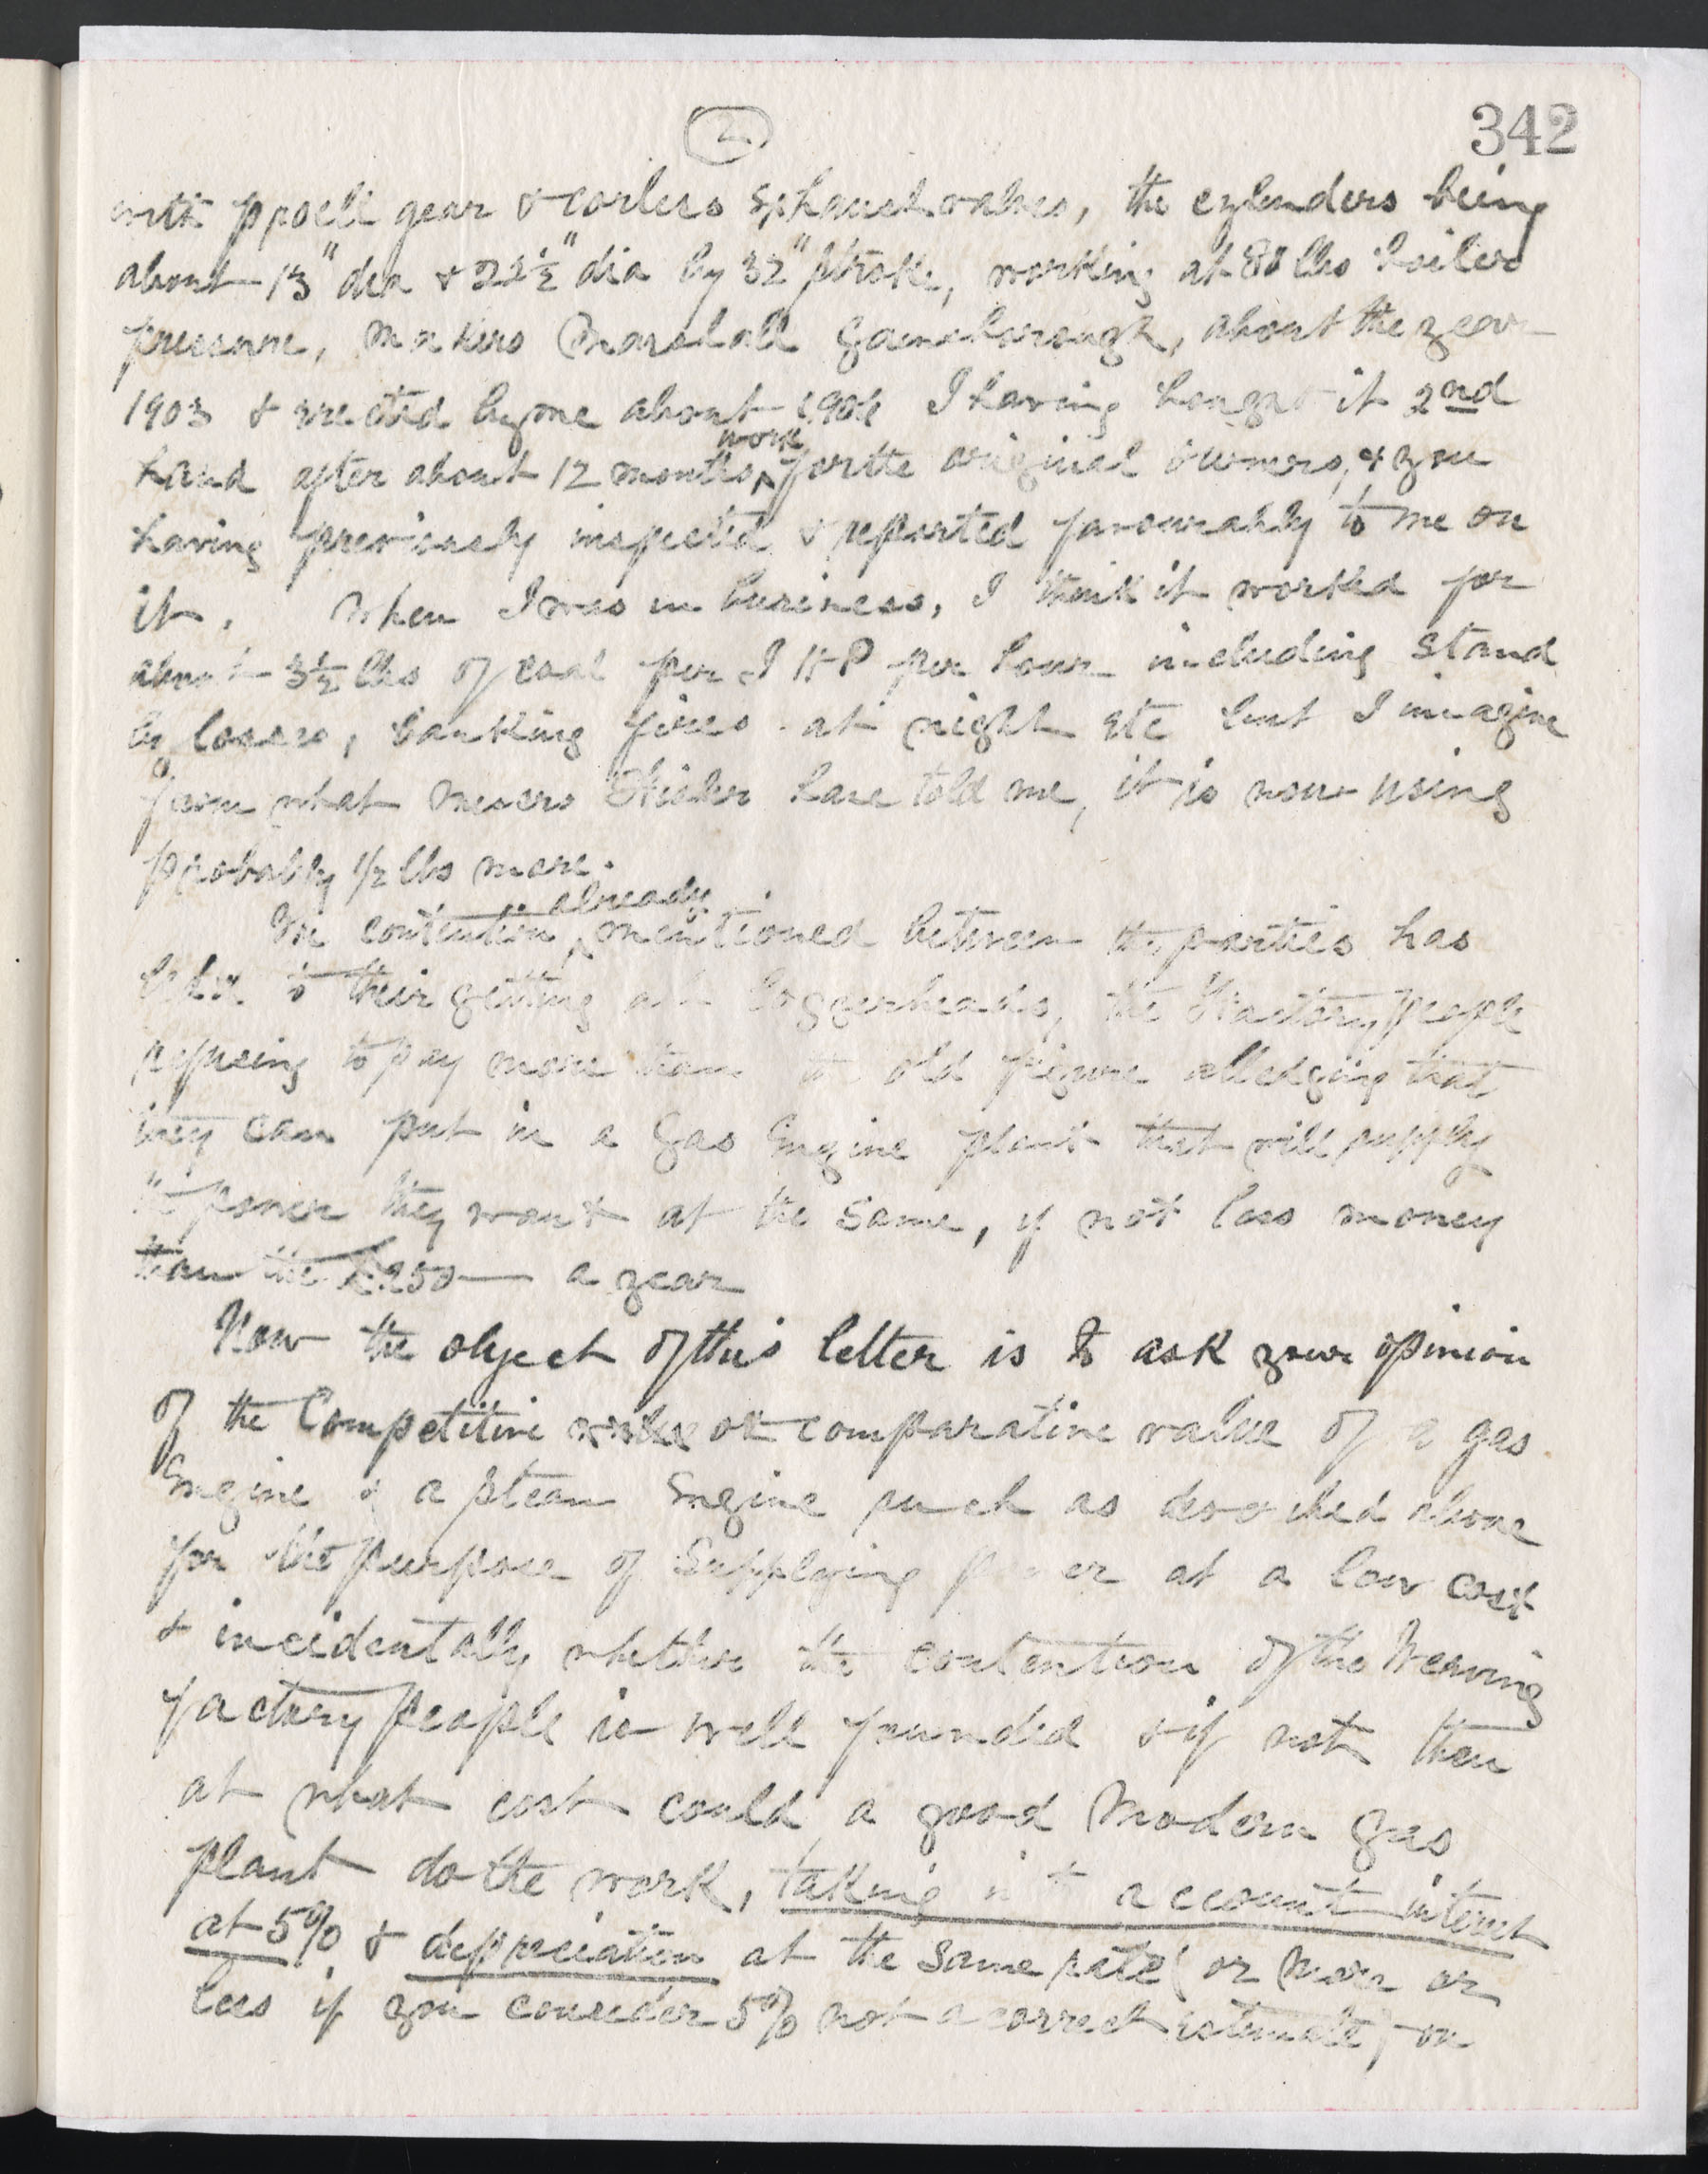 2
342
with proell gear & corliss Exhaust valves, the cylinders being
about 13" dia & 22½" dia by 32" stroke, working at 80 lbs boiler
pressure, makers Marshall Gainsborough, about the year
1903 & erected by me about 1904 I having bought it 2nd
hand after about 12 months work for the original owners, & you
having previously inspected & reported favourably to me on
it. When I was in business, I think it worked for
about 3½ lbs of coal per I H P per hour including stand
by losses, banking fires at night etc but I imagine
from what Messrs have told me, it is now using
probably ½ lbs more.
The contention already mentioned between the parties has
led to their getting at loggerheads, the Factory people
refusing to pay more than the old figure alledging that
they can put in a Gas Engine plant that will supply
the power they want at the same, if not less money
than the £250 — a year
Now the object of this letter is to ask your opinion
of the Competitive or comparative value of a gas
Engine & a steam Engine such as described above
for the purpose of Supplying power at a low cost
& incidentally whether the contention of the Weaving
factory people is well founded & if not then
at what cost could a good Modern Gas
plant do the work, taking into account interest
at 5% & depreciation at the same rate (or more or
less if you consider 5% not a correct estimate) on